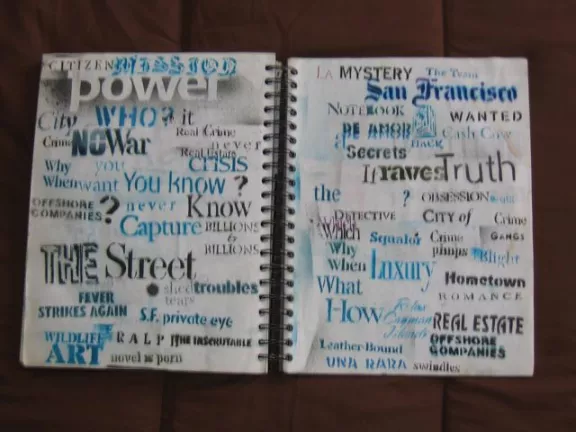 CITIZEN MISSION
power
City WHO? it
Crime NO War Real Crime never
Real Estate
Why you crisis
When want You know?
OFFSHORE COMPANIES? never Know
Capture BILLIONS & BILLIONS
THE Street
shed troubles
tears
FEVER
STRIKES AGAIN S.F. private eye
WILDLIFE RALPH THE INSCRUTABLE
ART novel is porn
LA MYSTERY The Team
San Francisco
NOTEBOOK WANTED
DE AMOR Cash Cow
Secrets HACK
It raves Truth
the ? OBSESSION
DETECTIVE CITY of Crime
Which Squalor Crime GANGS
Why pimps Blight
When Luxury
What Hometown
ROMANCE
How REAL ESTATE
Leather-Bound OFFSHORE COMPANIES
UNA RARA swindles